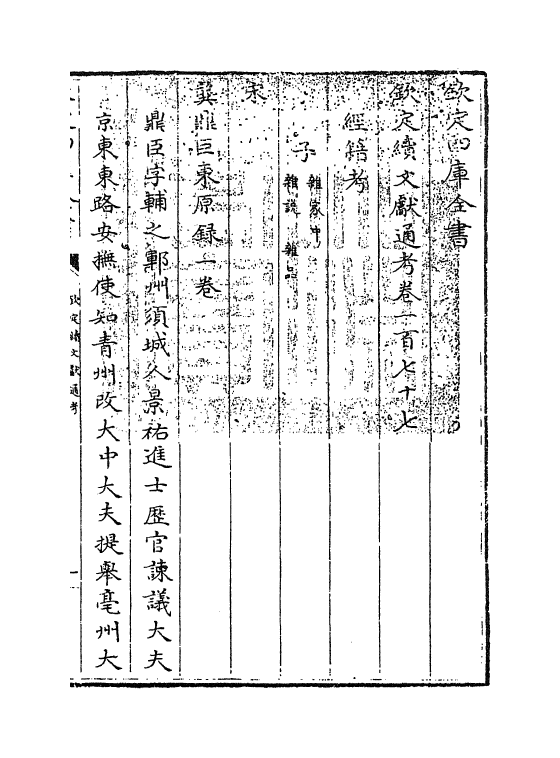 欽定四庫全書
欽定續文獻通考卷一百七十七
經籍考
子 雜家中
雜說 雜品
宋
龔鼎臣東原録一卷
鼎臣字輔之鄆州須城人景祐進士歷官諫議大夫
京東東路安撫使知青州改大中大夫提舉亳州太
欽定續文獻通考
一